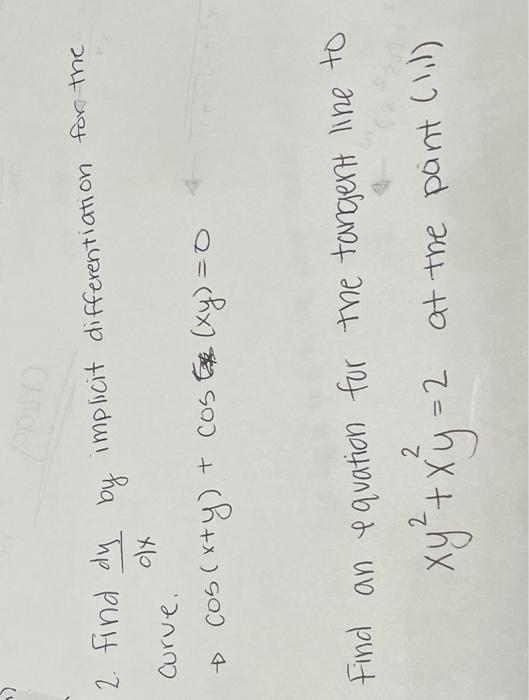 2. Find dy/dx by implicit differentiation for the
curve.
→ cos(x+y) + cos (xy) = 0
Find an equation for the tangent line to
xy² + x²y = 2 at the point (1,1)